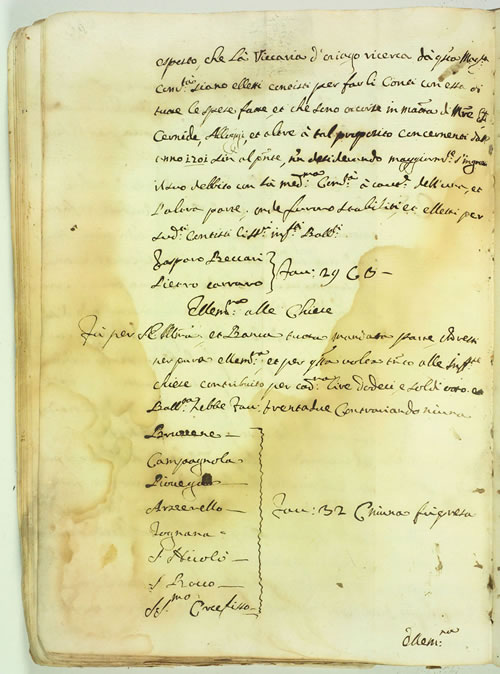 esposto, che La Vicaria d'oriago ricerca da q.sta Mag.ca
Com.tà siano elletti contisti per far li Conti con essa di
tutte le spese fatte, et che sono occorse in materia di
Cernide, Alloggi, et altro à tal proposito concernenti dall'
anno 1701 sin al p.nte, n'n desiderando maggiorm.te
debito con la med.ma Com.tà à caut.a dell'una, et
l'altra parte, onde furono stabiliti et elletti per
sud.ti Contisti l'inf.tti Ball.ti
Gasparo Beccari
Pietro carraro
Fau: 29 C 3 —
Ellem.na alle Chiese
Fù per et Banca tuttora mandata parte
per pura ellem.na et per q.sta volta tãto alle inf.tte
chiese contribuito per cad.na Lire dodeci e soldi otto e
Ball.ta hebbe Fau: trentadue Contrariando niuna
Bruzene —
Campagnola
Piovega
Arzerello —
Tognana —
S. Nicolò —
S. Rocco —
SS.mo Crocefisso —
Fau: 32 C niuna fù presa
Ellem.na